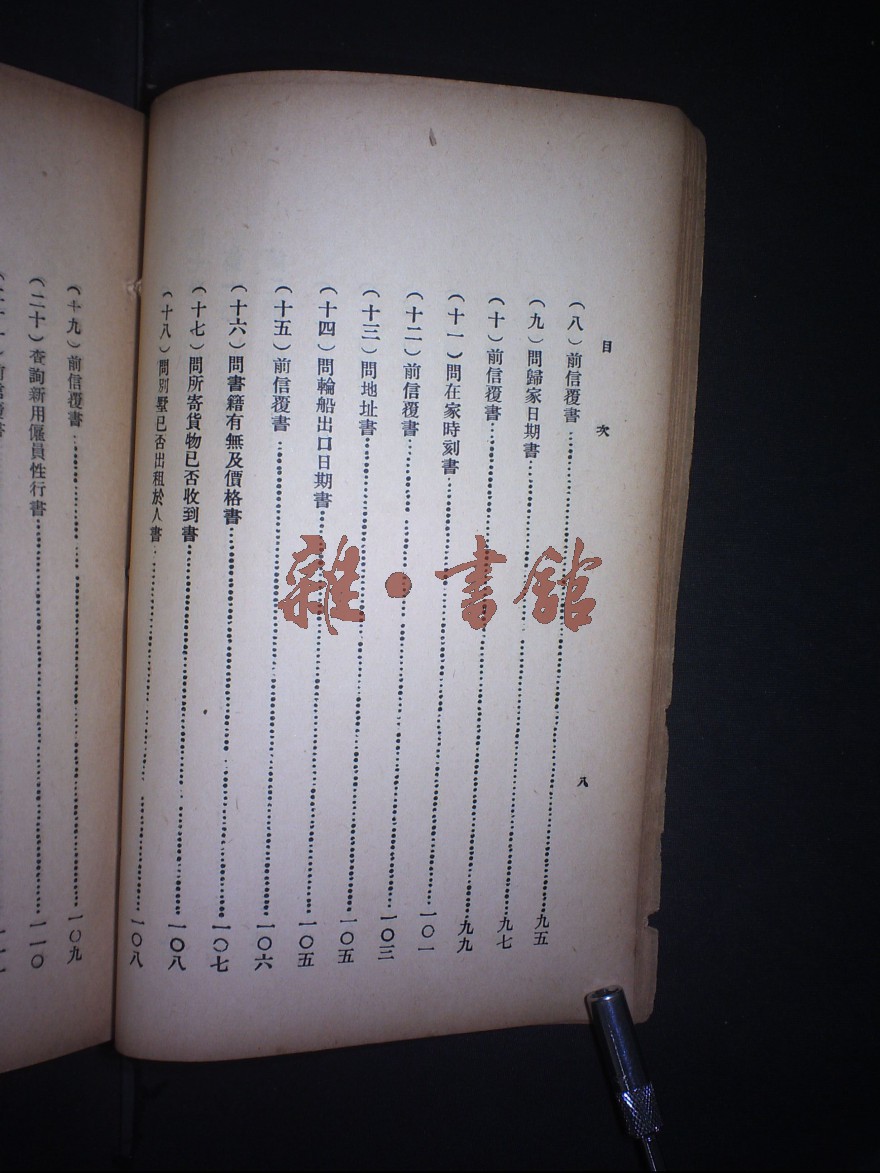 目次
八
（八）前信覆書……九五
（九）問歸家日期書……九七
（十）前信覆書……九九
（十一）問在家時刻書……一〇一
（十二）前信覆書……一〇三
（十三）問地址書……一〇五
（十四）問輪船出口日期書……一〇五
（十五）前信覆書……一〇六
（十六）問書籍有無及價格書……一〇七
（十七）問所寄貨物已否收到書……一〇八
（十八）問別墅已否出租於人書……一〇八
（十九）前信覆書……一〇九
（二十）查詢新用僱員性行書……一一〇
前信覆書
雜·書館